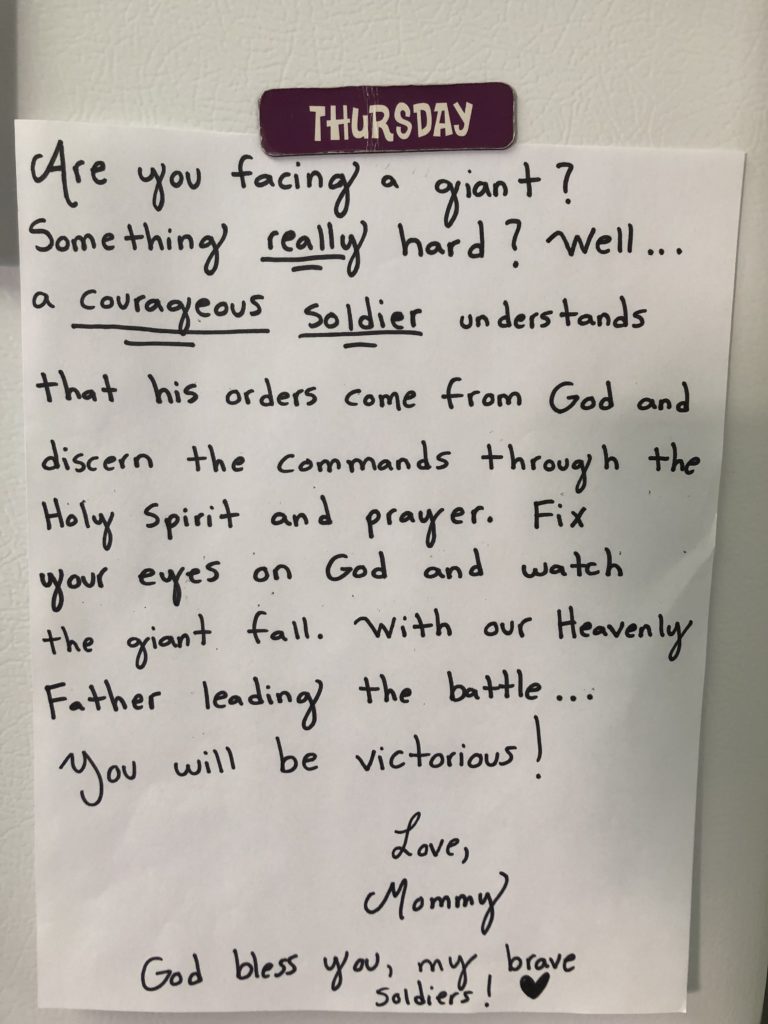 THURSDAY
Are you facing a giant?
Something really hard? Well...
a courageous soldier understands
that his orders come from God and
discern the commands through the
Holy Spirit and prayer. Fix
your eyes on God and watch
the giant fall. With our Heavenly
Father leading the battle...
You will be victorious!
Love,
Mommy
God bless you, my brave
soldiers! ♥